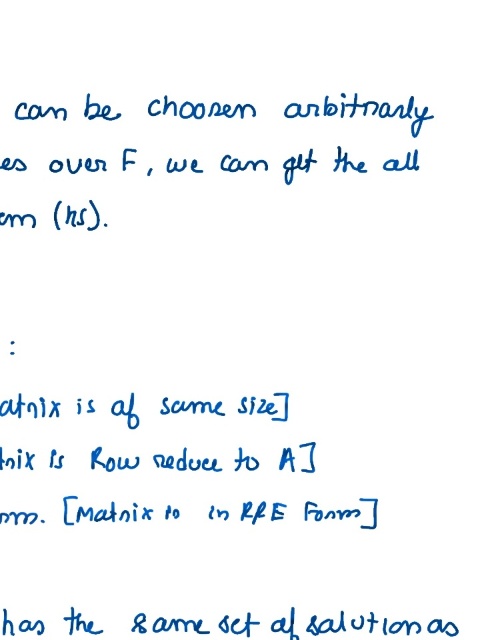 can be choosen arbitrarly
es over F, we can get the all
em (hs).
:
atrix is of same size]
trix is Row reduce to A]
rm. [Matrix is in RRE Form]
has the same set of salution as